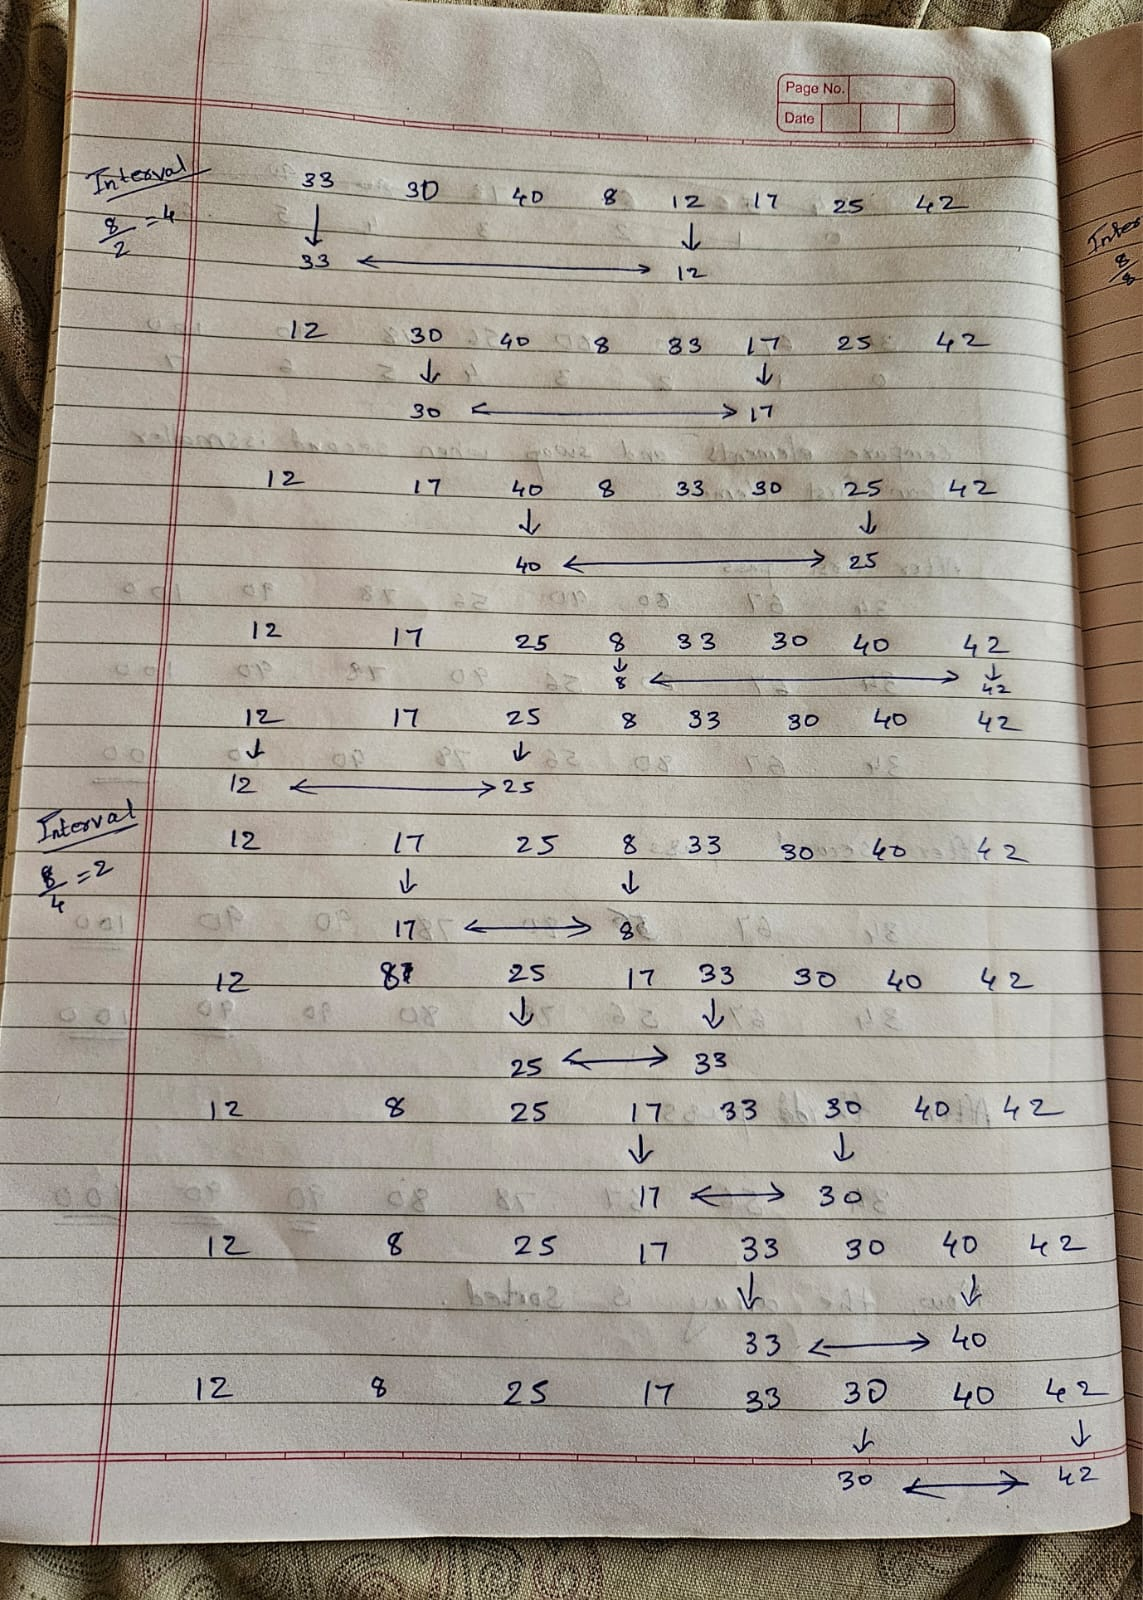 Page No.
Date
Interval
8/2 = 4
33 30 40 8 12 17 25 42
↓ ↓
33 ⟷ 12
12 30 40 8 33 17 25 42
↓ ↓
30 ⟷ 17
12 17 40 8 33 30 25 42
↓ ↓
40 ⟷ 25
12 17 25 8 33 30 40 42
↓ ↓
8 ⟷ 42
12 17 25 8 33 30 40 42
↓ ↓
12 ⟷ 25
Interval
8/4 = 2
12 17 25 8 33 30 40 42
↓ ↓
17 ⟷ 8
12 8 25 17 33 30 40 42
↓ ↓
25 ⟷ 33
12 8 25 17 33 30 40 42
↓ ↓
17 ⟷ 30
12 8 25 17 33 30 40 42
↓ ↓
33 ⟷ 40
12 8 25 17 33 30 40 42
↓ ↓
30 ⟷ 42
Inter
8/8